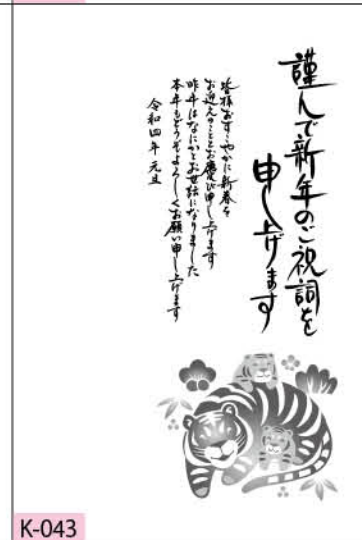 謹んで新年のご祝詞を
申し上げます
皆様おすこやかに新春を
お迎えのこととお慶び申し上げます
昨年はなにかとお世話になりました
本年もどうぞよろしくお願い申し上げます
令和四年 元旦
K-043